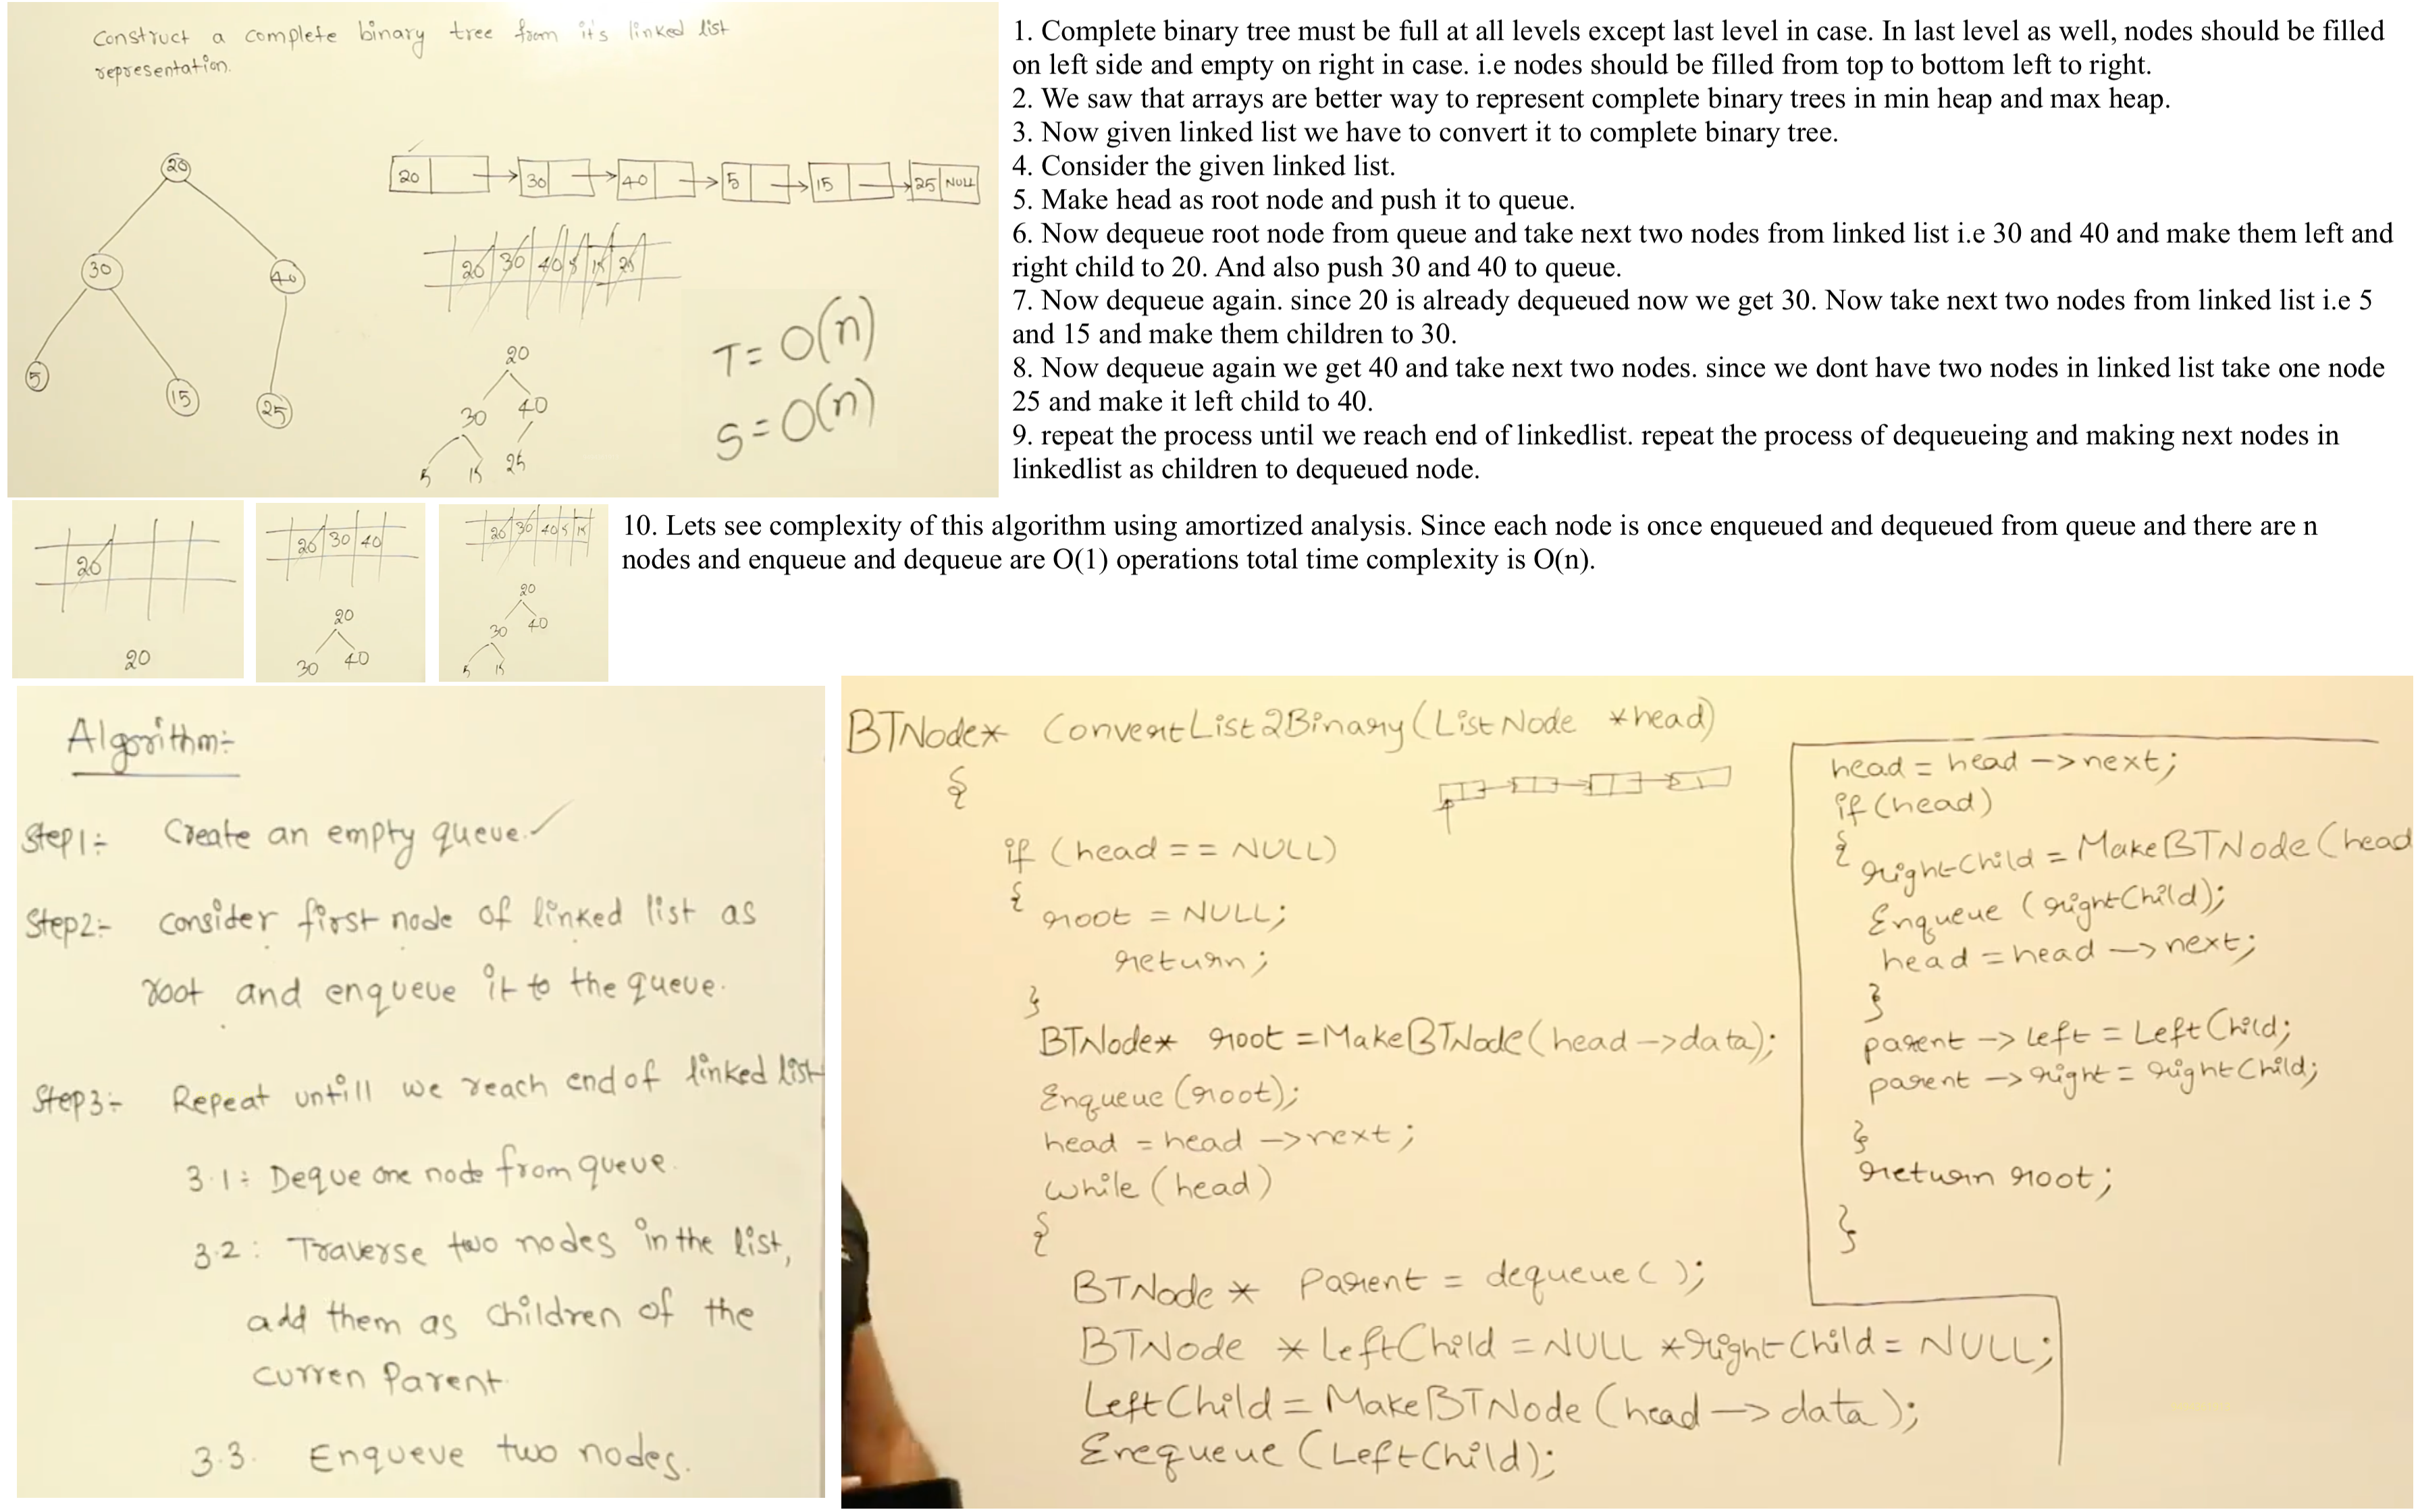 Construct a complete binary tree from it's linked list
representation.
20
30
40
5
15
25
20 30 40 5 15 25 NULL
20 30 40 5 15 25
20
30 40
5 15 25
T = O(n)
S = O(n)
1. Complete binary tree must be full at all levels except last level in case. In last level as well, nodes should be filled
on left side and empty on right in case. i.e nodes should be filled from top to bottom left to right.
2. We saw that arrays are better way to represent complete binary trees in min heap and max heap.
3. Now given linked list we have to convert it to complete binary tree.
4. Consider the given linked list.
5. Make head as root node and push it to queue.
6. Now dequeue root node from queue and take next two nodes from linked list i.e 30 and 40 and make them left and
right child to 20. And also push 30 and 40 to queue.
7. Now dequeue again. since 20 is already dequeued now we get 30. Now take next two nodes from linked list i.e 5
and 15 and make them children to 30.
8. Now dequeue again we get 40 and take next two nodes. since we dont have two nodes in linked list take one node
25 and make it left child to 40.
9. repeat the process until we reach end of linkedlist. repeat the process of dequeueing and making next nodes in
linkedlist as children to dequeued node.
20
20
20 30 40
20
30 40
20 30 40 5 15
20
30 40
5 15
10. Lets see complexity of this algorithm using amortized analysis. Since each node is once enqueued and dequeued from queue and there are n
nodes and enqueue and dequeue are O(1) operations total time complexity is O(n).
Algorithm:-
Step1:- Create an empty queue.
Step2:- Consider first node of linked list as
root and enqueue it to the queue.
Step3:- Repeat untill we reach end of linked list
3.1: Deque one node from queue.
3.2: Traverse two nodes in the list,
add them as children of the
curren Parent.
3.3. Enqueue two nodes.
BTNode* ConvertList2Binary(ListNode *head)
{
if (head == NULL)
{
root = NULL;
return;
}
BTNode* root = MakeBTNode(head->data);
Enqueue(root);
head = head->next;
while(head)
{
BTNode * Parent = dequeue();
BTNode *LeftChild = NULL *rightChild = NULL;
LeftChild = MakeBTNode(head->data);
Enequeue(LeftChild);
head = head->next;
if(head)
{ rightChild = MakeBTNode(head
Enqueue(rightChild);
head = head->next;
}
parent->left = LeftChild;
parent->right = rightChild;
}
return root;
}